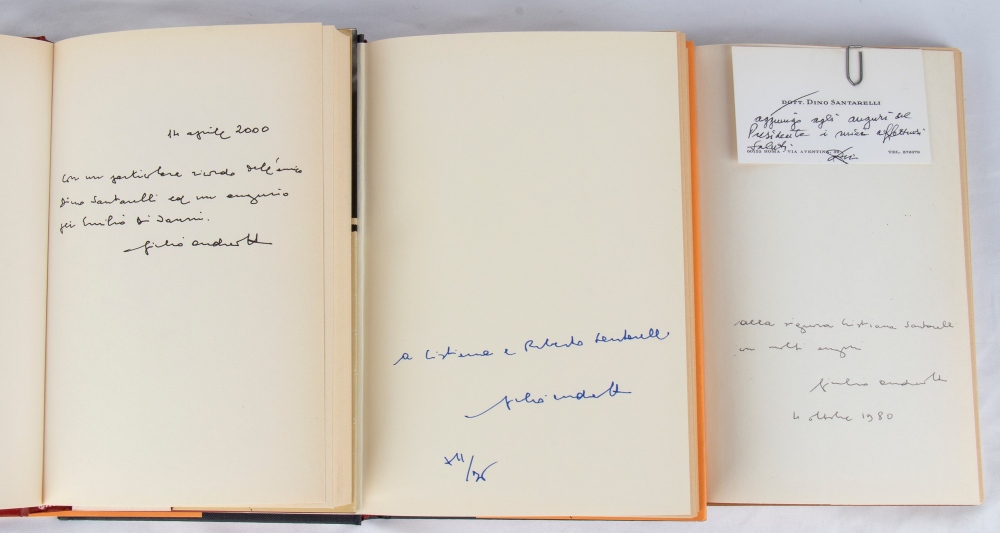 14 aprile 2000
con un particolare ricordo dell'amico
Dino Santarelli ed un augurio
per Emilio Di Ianni.
Giulio Andreotti
a Cristiana e Roberto Santarelli
Giulio Andreotti
XII/96
DOTT. DINO SANTARELLI
aggiungo agli auguri del
Presidente i miei affettuosi
saluti
00153 ROMA - VIA AVENTINA
TEL.
alla signora Cristiana Santarelli
con molti auguri
Giulio Andreotti
4 ottobre 1980